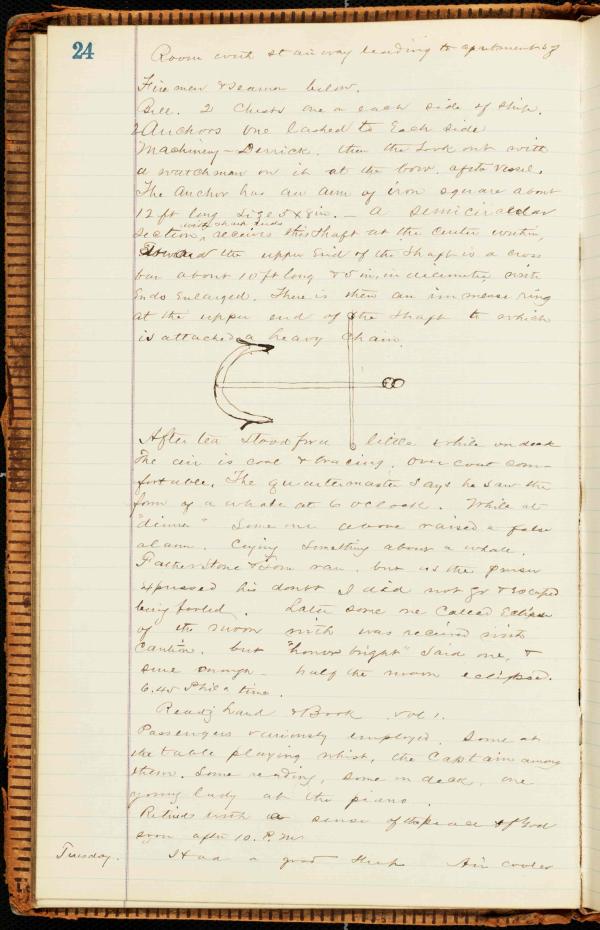 24
Room with stairway leading to apartments of
Firemen & Seamen below.
Bell. 2 Chests one on each side of ship.
2 Anchors one lashed to Each side
Machinery - Derrick. then the Look out with
a watchman on it at the bow. of the vessel.
The Anchor has an arm of iron square about
12 ft long size 5 x 8 in. — A semicircular
with sharp ends
section, receives this shaft at the center within,
Toward the upper End of the Shaft is a cross
bar about 10 ft long & 5 in. in diameter with
Ends Enlarged. There is then an immense ring
at the upper end of the Shaft to which
is attached a heavy chain.
After tea stood for a little while on deck
The air is cool & bracing, overcoat com-
fortable. The quartermaster says he saw the
form of a whale at 6 oclock. While at
"dinner" some one above raised a false
alarm. Crying something about a whale.
Featherstone & Tom ran, but as the purser
expressed his doubt I did not go & escaped
being fooled. Later some one called Eclipse
of the moon with was received with
Caution. but "honor bright" said one, &
sure enough - half the moon eclipsed.
6.45 Phila time.
Read Hand Book vol 1.
Passengers variously employed. Some at
the table playing whist, the Captain among
them. Some reading, some on deck, one
young lady at the piano.
Retired with a sense of the peace of God
soon after 10. P.M.
Tuesday. Had a good sleep Air cooler